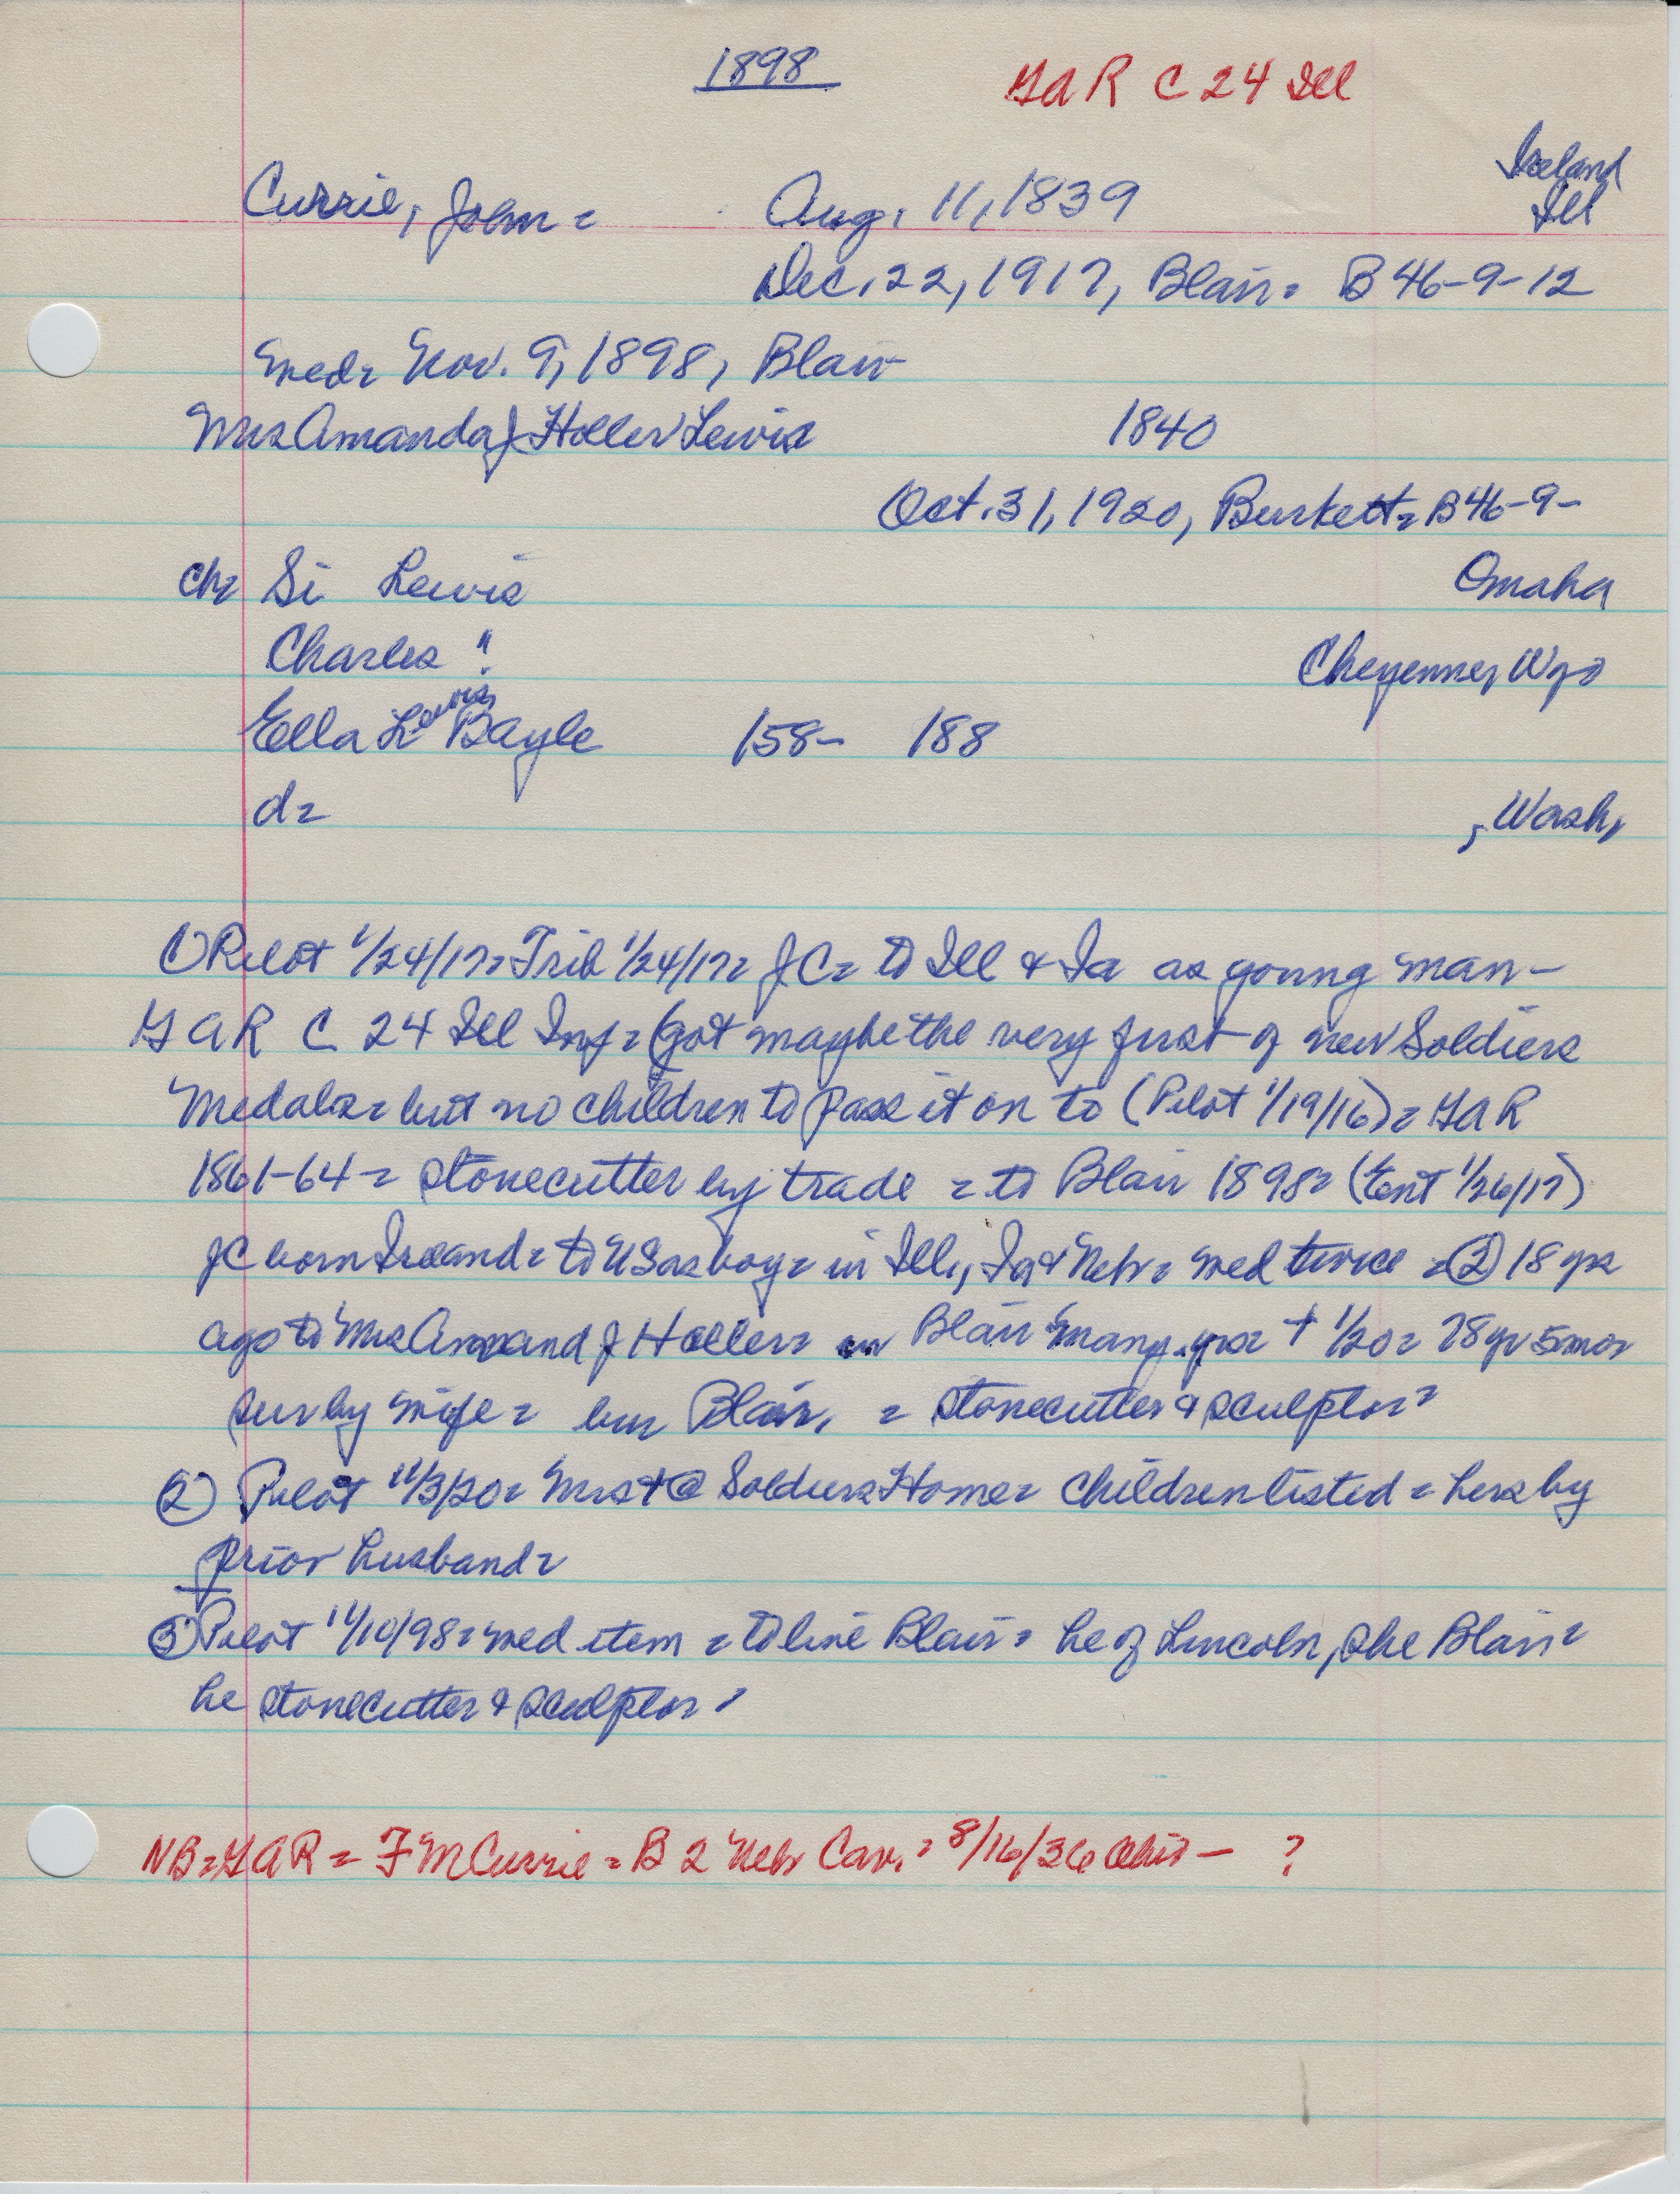 1898
GAR C 24 Ill
Ireland
Ill
Currie, John = Aug. 11, 1839
Dec. 22, 1917, Blair = B 46-9-12
med = Nov. 9, 1898, Blair
Mrs Amanda J Holler Lewis 1840
Oct. 31, 1920, Burkett = B46-9-
ch = Si Lewis Omaha
Charles " Cheyenne, Wyo
Ella Lewis Bayle 158- 188
d = , Wash,
① Pilot 1/24/17 = Trib 1/24/17 = JC = to Ill & Ia as young man -
GAR C 24 Ill Inf = (got maybe the very first of new Soldiers
Medals = but no children to pass it on to (Pilot 1/19/16) = GAR
1861-64 = stonecutter by trade = to Blair 1898 = (Ent 1/26/17)
JC born Ireland = to US as boy = in Ill, Ia & Nebr = med twice = ② 18 yrs
ago to Mrs Amand J Holler = in Blair many yrs = + 1/20 = 78 yr 5 mos
sur by wife = bur Blair, = stonecutter & sculptor =
② Pilot 11/3/20 = Mrs + @ Soldiers Home = children listed = hers by
prior husband =
③ Pilot 11/10/98 = med item = to live Blair = he of Lincoln, she Blair =
he stonecutter & sculptor =
NB = GAR = F M Currie = B 2 Nebr Cav. = 8/16/36 - ?